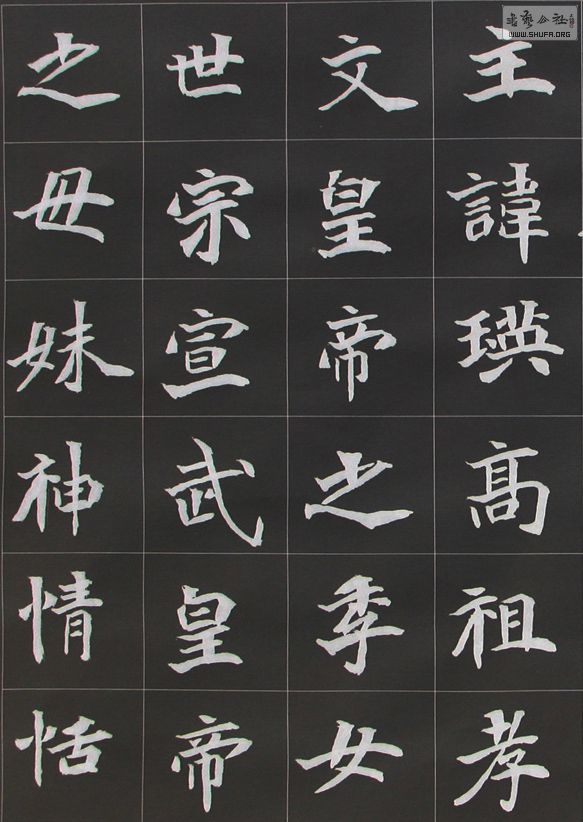 主諱瑛高祖孝
文皇帝之季女
世宗宣武皇帝
之母妹神情恬
書藝公社
WWW.SHUFA.ORG